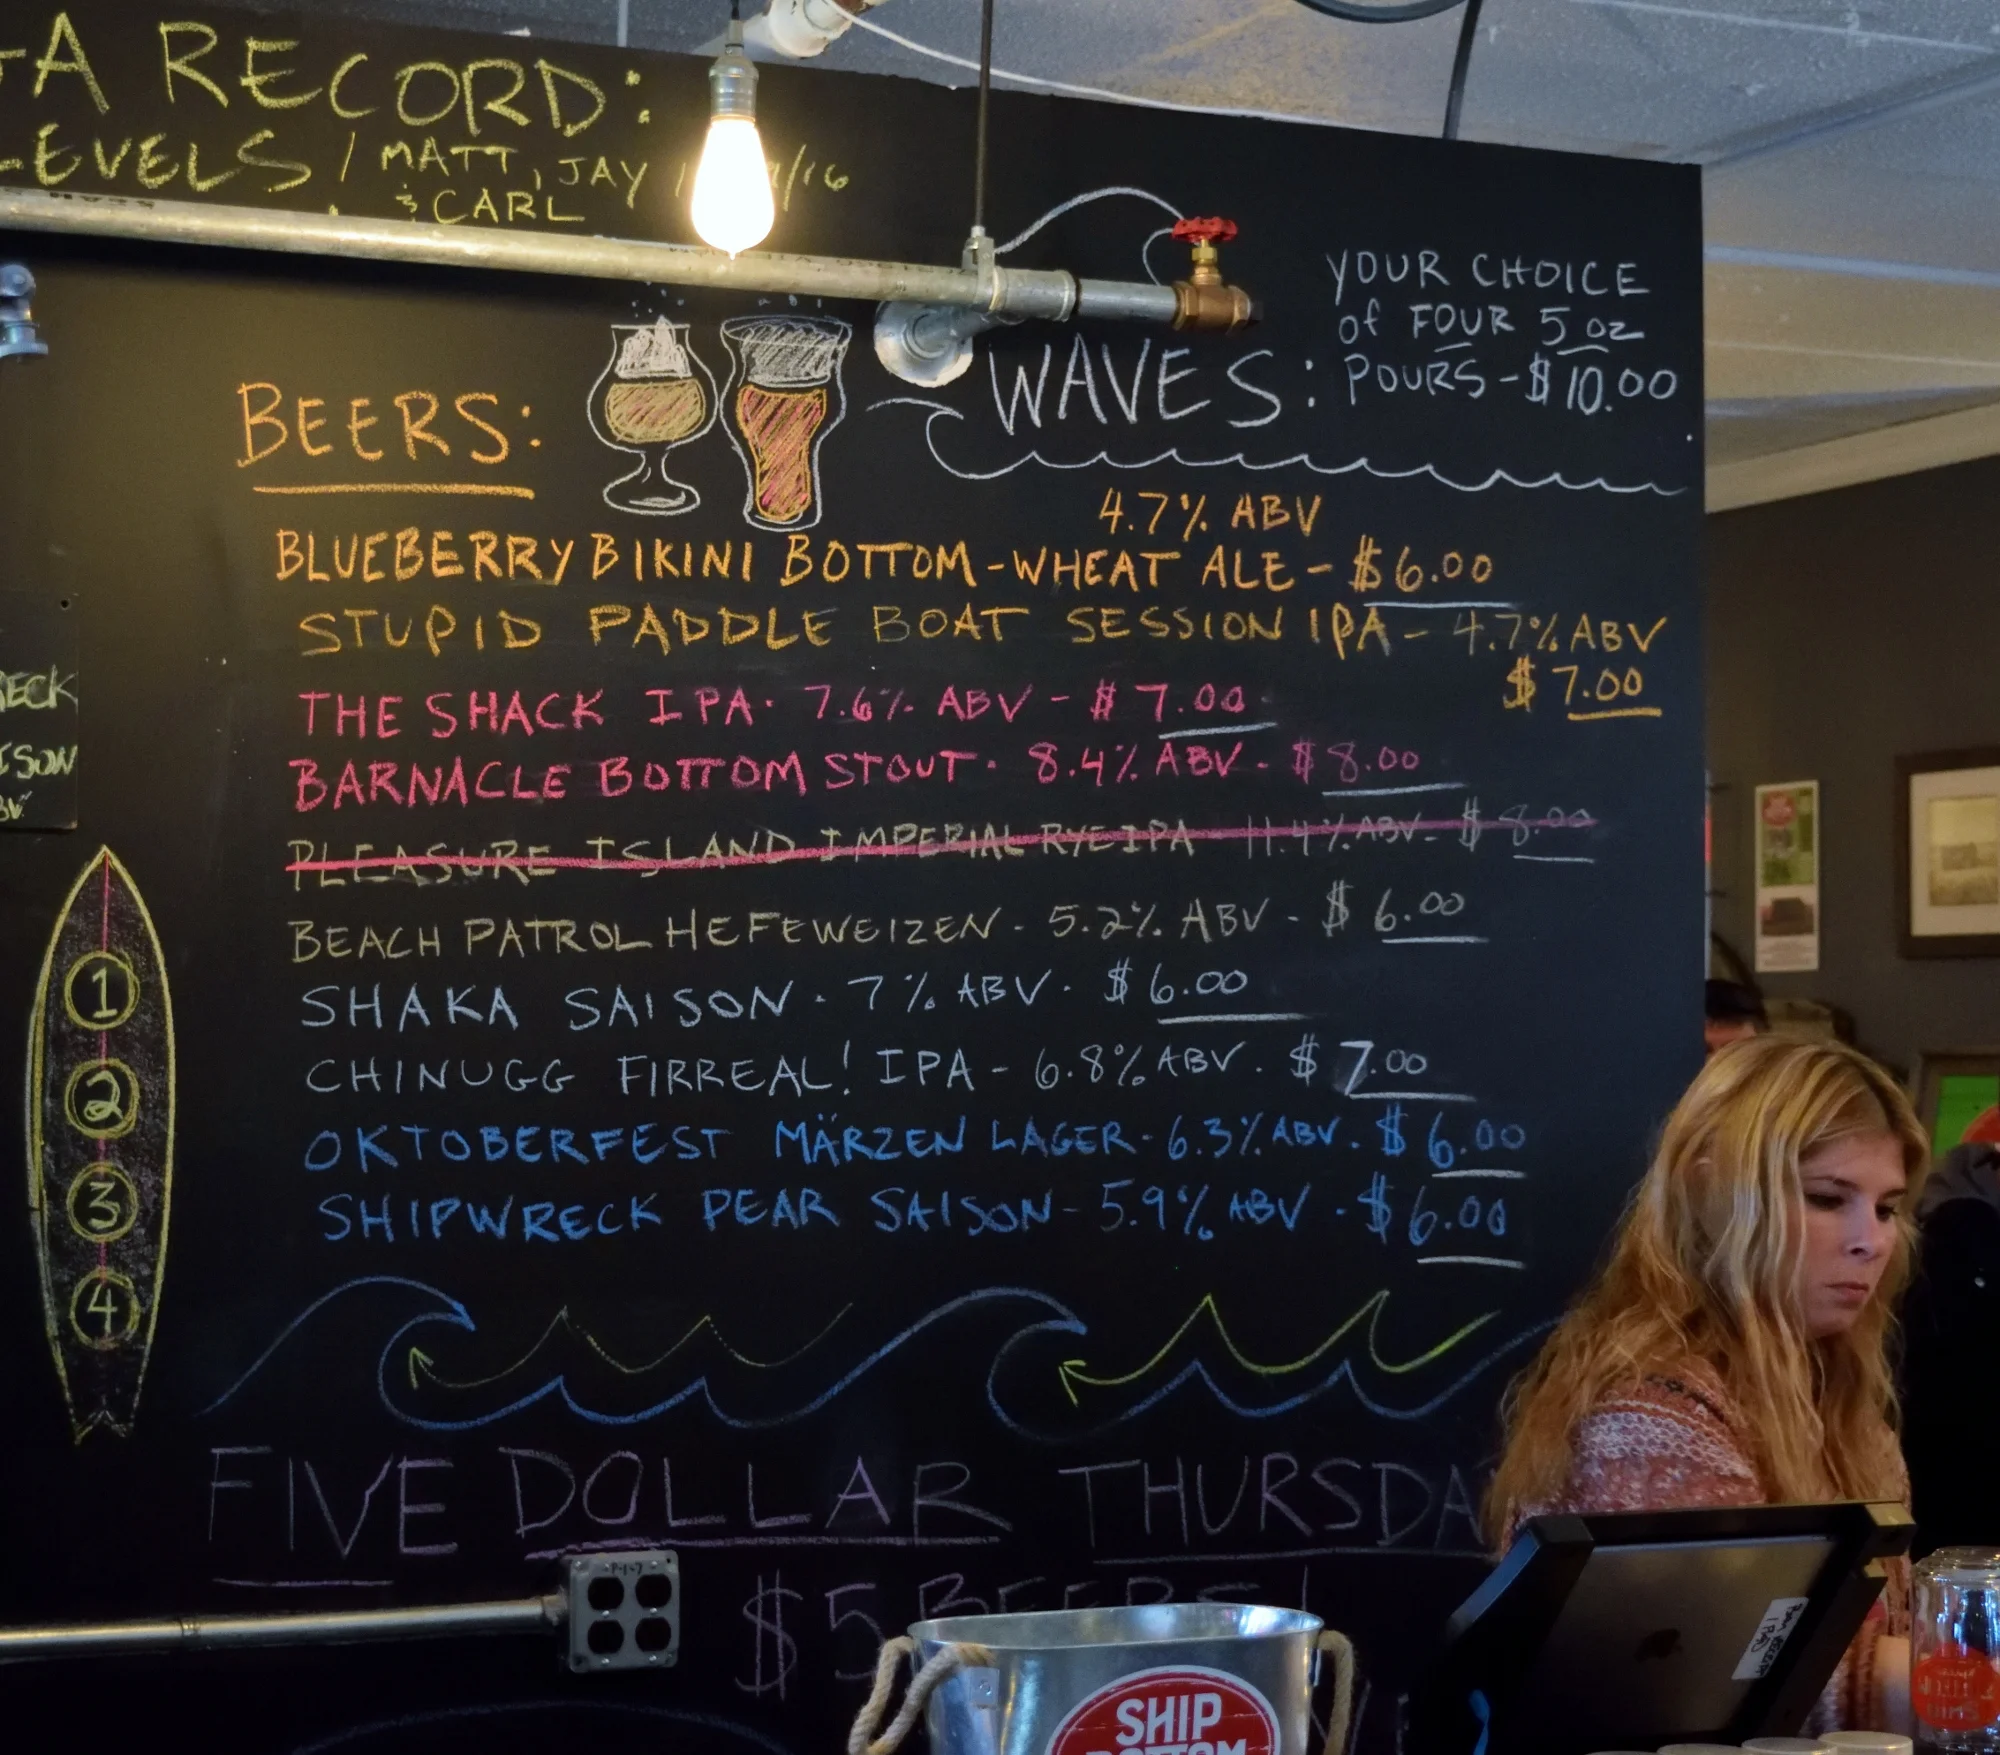 A RECORD:
LEVELS / MATT, JAY
& CARL
/16
YOUR CHOICE
of FOUR 5 oz
POURS - $10.00
WAVES:
BEERS:
4.7% ABV
BLUEBERRY BIKINI BOTTOM - WHEAT ALE - $6.00
STUPID PADDLE BOAT SESSION IPA - 4.7% ABV
$7.00
THE SHACK IPA · 7.6% ABV - $7.00
BARNACLE BOTTOM STOUT · 8.4% ABV - $8.00
PLEASURE ISLAND IMPERIAL RYE IPA 11.4% ABV - $8.00
BEACH PATROL HEFEWEIZEN - 5.2% ABV - $6.00
SHAKA SAISON · 7% ABV · $6.00
CHINUGG FIRREAL! IPA - 6.8% ABV · $7.00
OKTOBERFEST MÄRZEN LAGER - 6.3% ABV · $6.00
SHIPWRECK PEAR SAISON - 5.9% ABV · $6.00
RECK
ISON
BV
1
2
3
4
FIVE DOLLAR THURSDA
$5 BEERS!
SHIP
BOTTOM